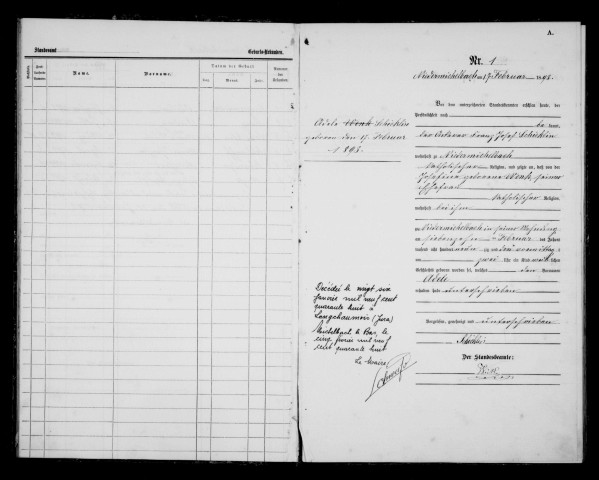 Standesamt
Geburts-Urkunden.
Name.
Vorname.
Datum der Geburt
Tag.
Monat.
Jahr.
A.
Nr. 1
Niedermichelbach am 17. Februar 1895.
Vor dem unterzeichneten Standesbeamten erschien heute, der
Persönlichkeit nach
be kannt,
der Ackerer Franz Josef Schicklin
wohnhaft zu Niedermichelbach
katholischer Religion, und zeigte an, daß von der
Josefina geborene Wenk, seiner
Ehefrau
katholischer Religion,
wohnhaft bei ihm
zu Niedermichelbach in seiner Wohnung
am siebenzehn ten Februar des Jahres
tausend acht hundert neunzig
um zwei Uhr ein Kind weib lichen
Geschlechts geboren worden sei, welches den Vornamen
Adele
erhalten habe unterschrieben
Vorgelesen, genehmigt und unterschrieben
Schicklin
Der Standesbeamte:
Adele Wenk Schicklin
geboren den 17. Februar
1895.
Décédée le vingt six
janvier mil neuf cent
quarante huit à
Longchaumois (Jura)
Michelbach le Bas, le
cinq février mil neuf
cent quarante huit
Le Maire